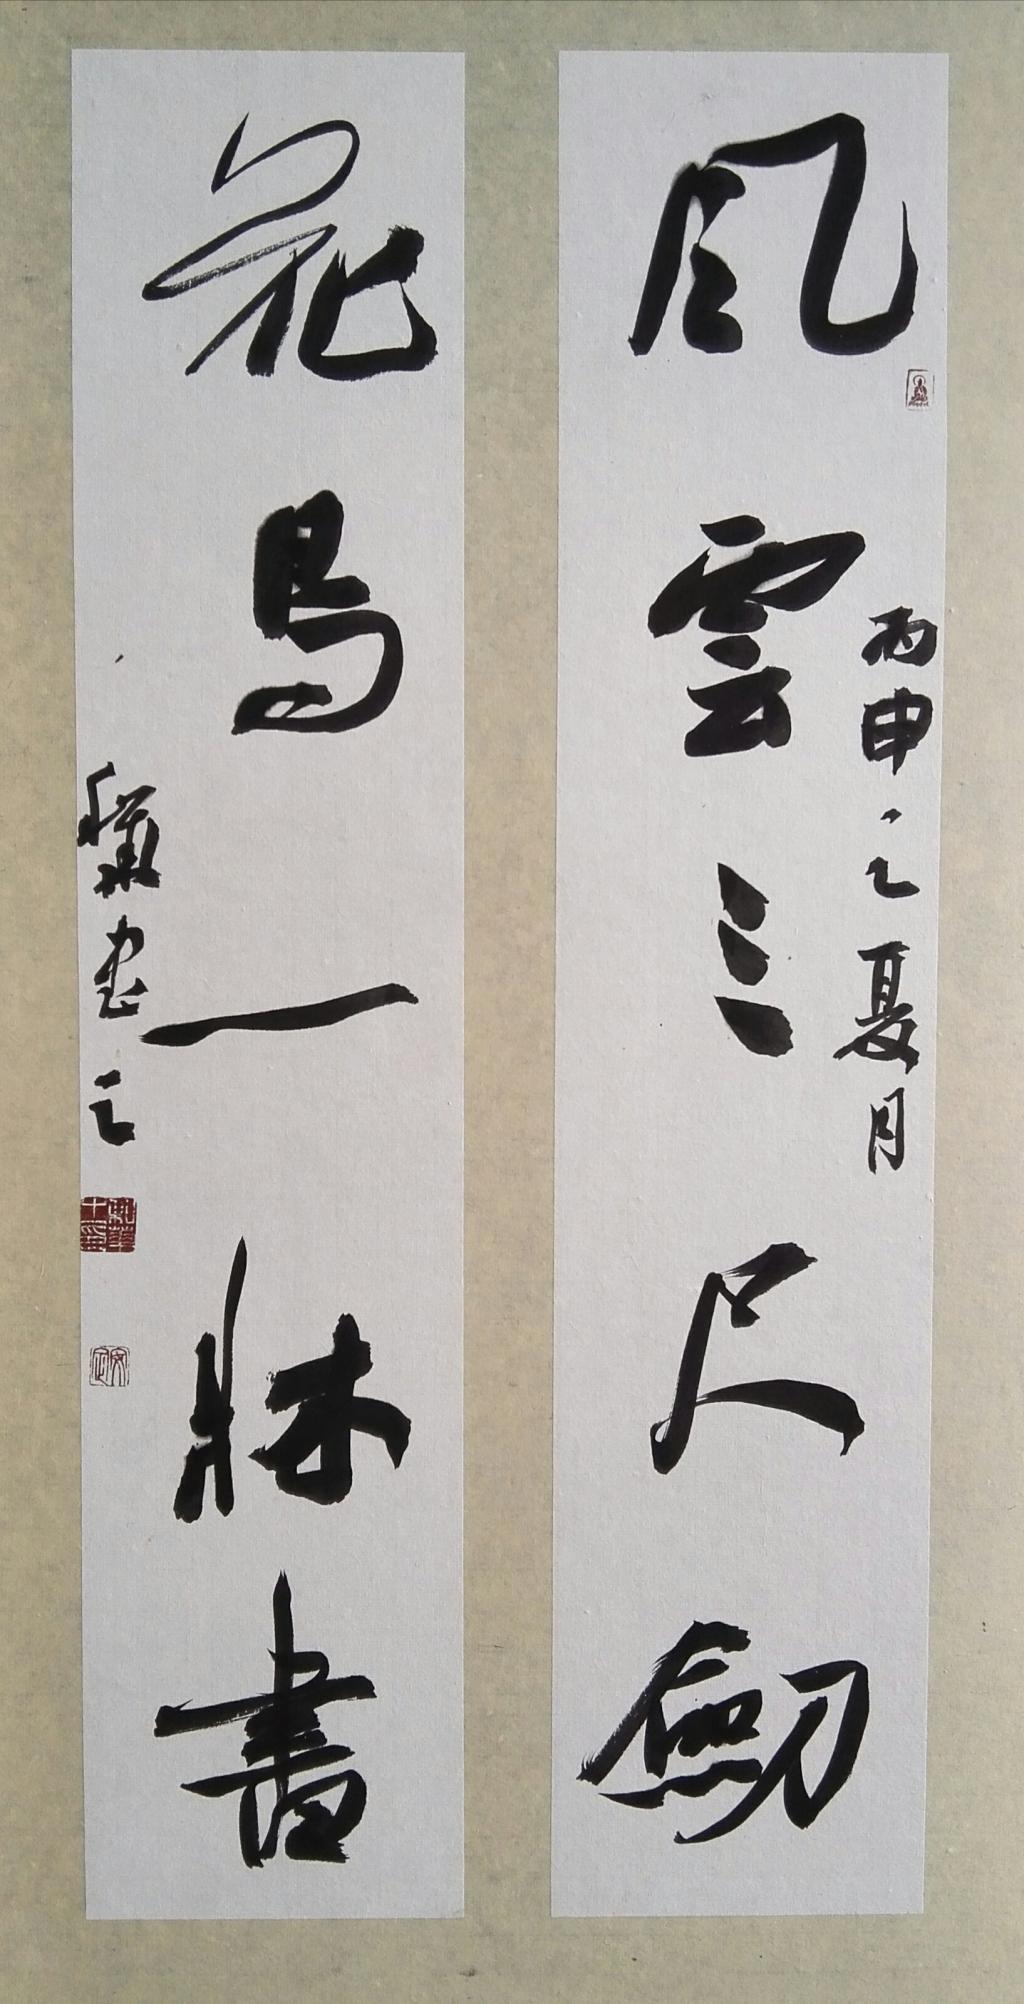 風雲三尺劍
丙申之夏月
花鳥一牀書
書之